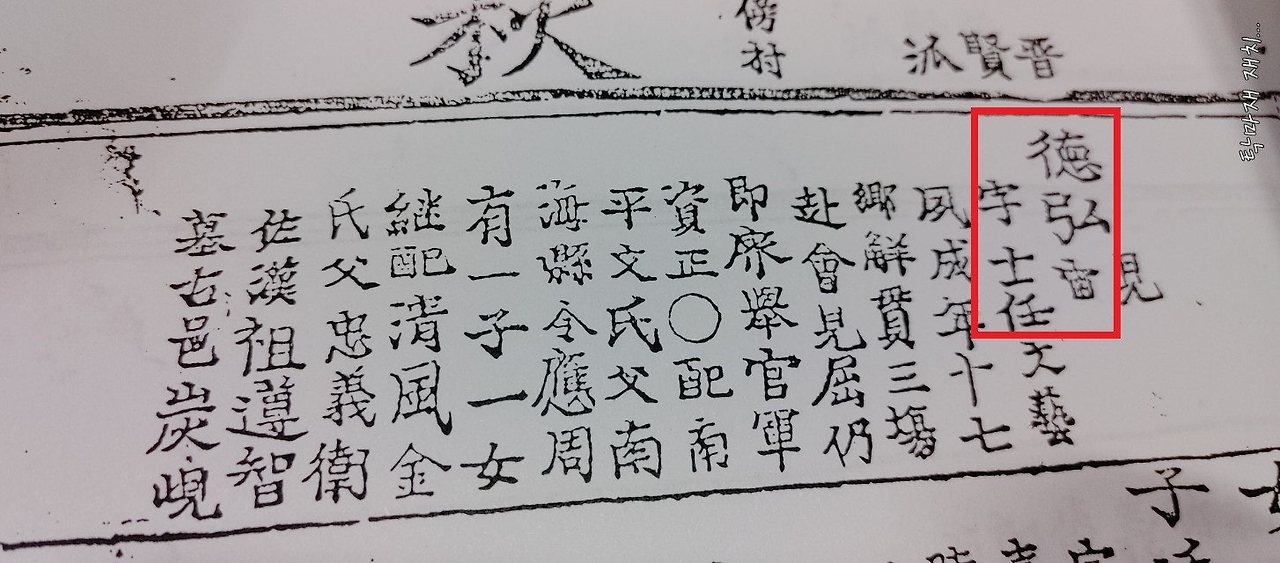 晋賢派
탁마재 재치...
見
德弘
字士任文藝
夙成年十七
鄉解三場
赴會見屈仍
即廢擧官軍
資正〇配南
平文氏父南
海縣令應周
有一子一女
継配清風金
氏父忠義衛
佐漢祖遵智
墓古邑炭峴
子